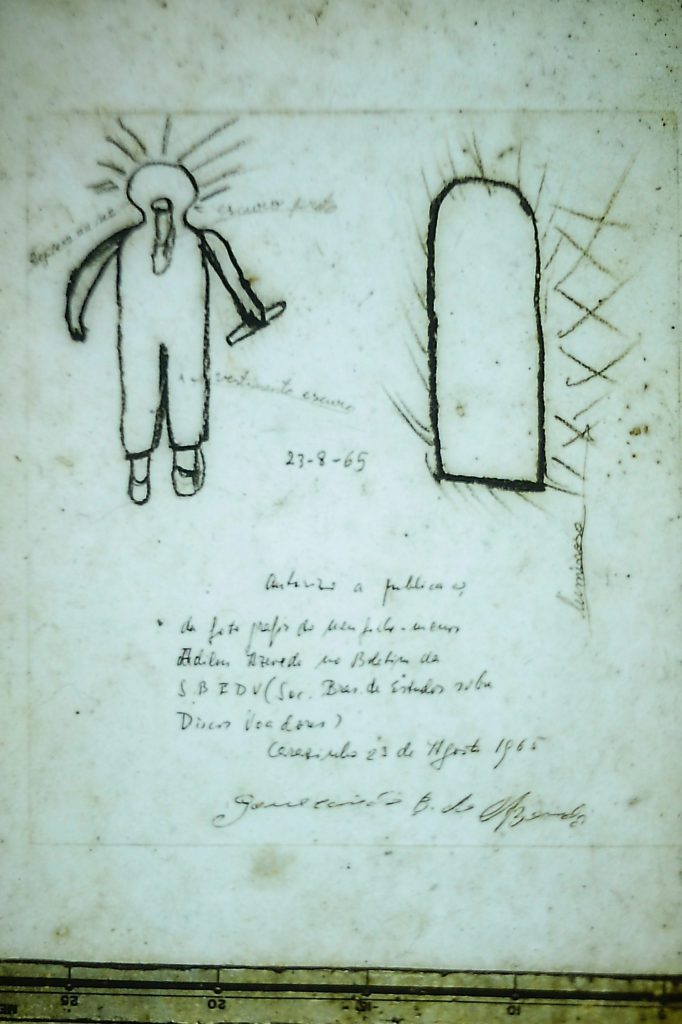 escuro
vestimenta escura
23-8-65
luminoso
Autorizo a publicação
da foto grafia do meu filho-menor
Adilon Azevedo no Boletim da
SBEDV (Soc. Bras. de Estudos sobre
Discos Voadores)
23 de Agosto 1965
B. de Azevedo
25
20
15
10